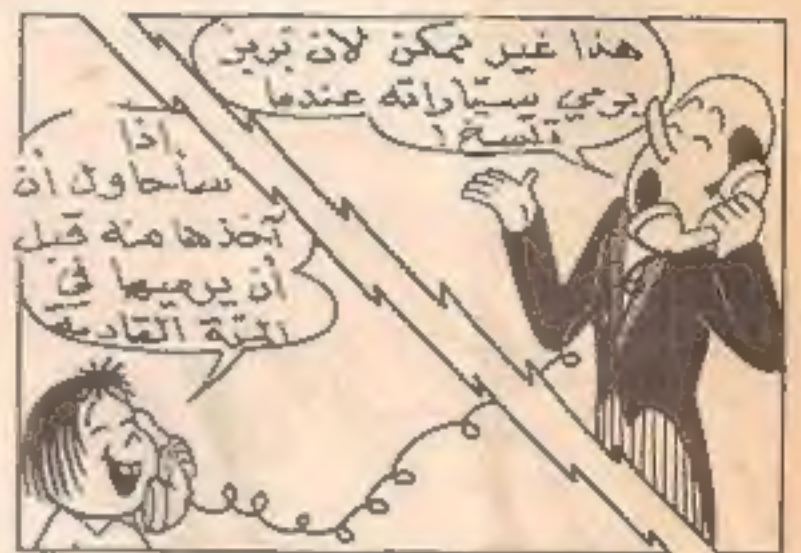 هذا غير ممكن لان بربز
يرمي بسياراته عندما
تتسخ !
اذا
سأحاول أن
آخذها منه قبل
أن يرميها في
المرة القادمة